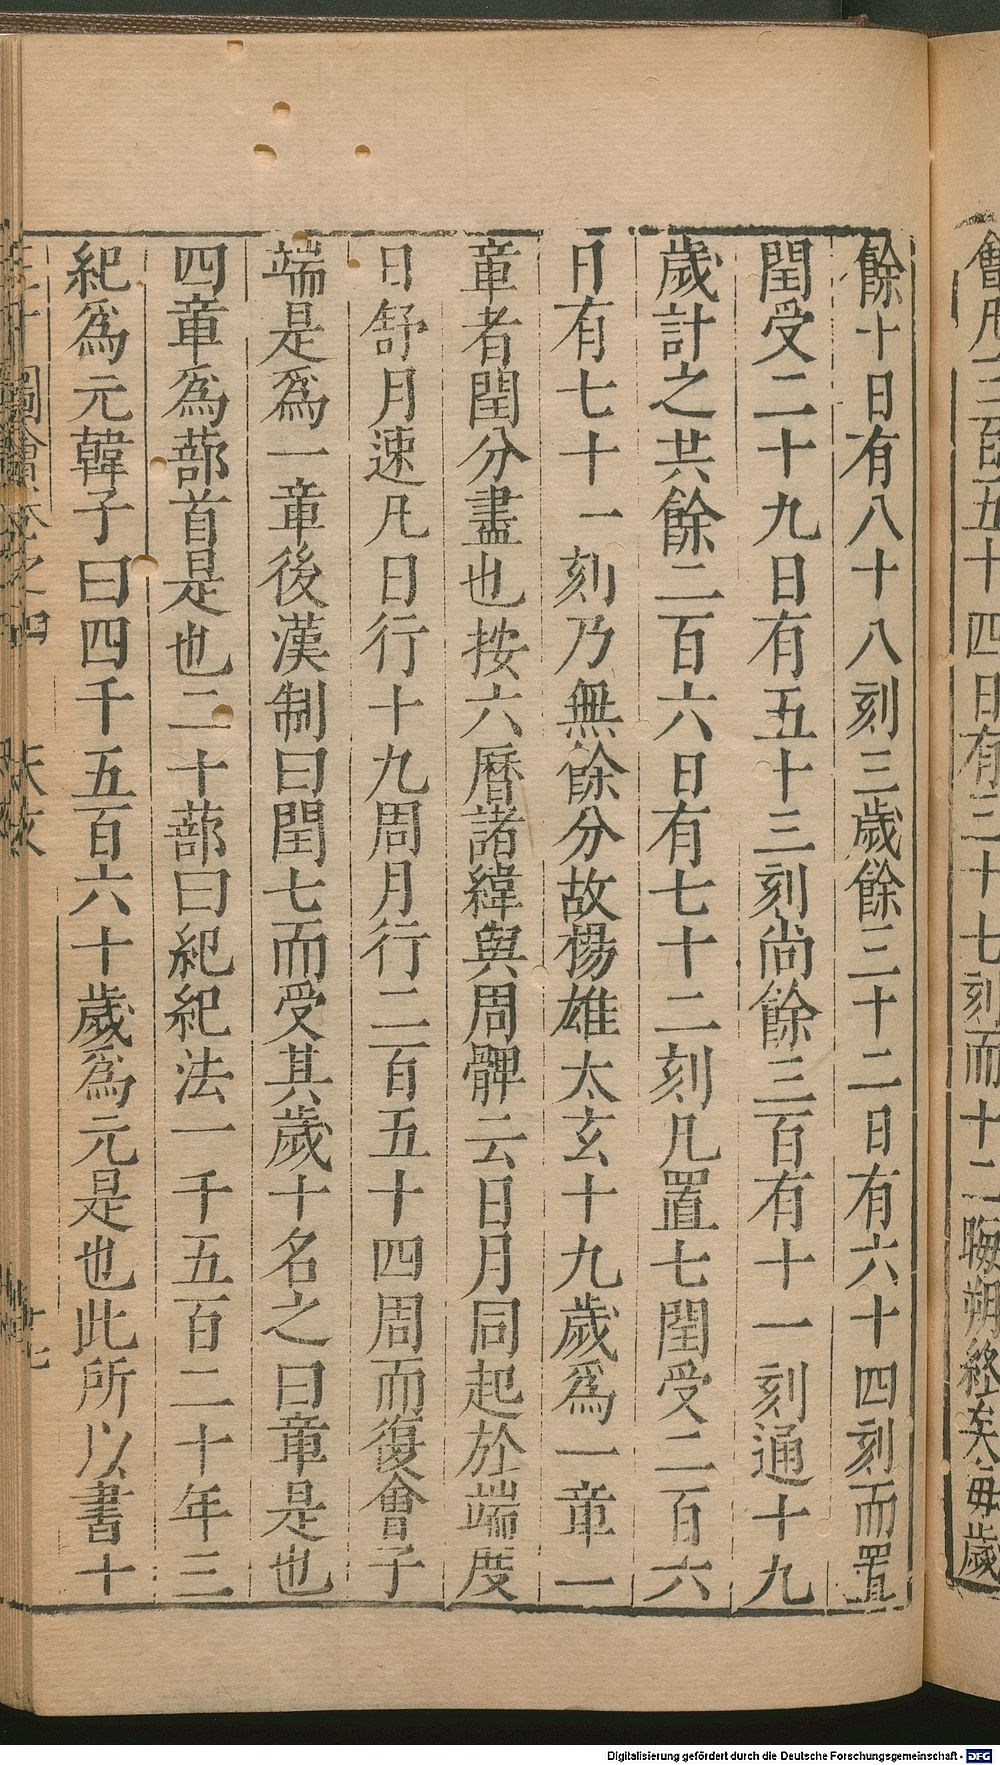 會月三百五十四日有三十七刻而十二晦朔終矣每歲
餘十日有八十八刻三歲餘三十二日有六十四刻而置
閏受二十九日有五十三刻尚餘三百有十一刻通十九
歲計之共餘二百六日有七十二刻凡置七閏受二百六
日有七十一刻乃無餘分故楊雄太玄十九歲爲一章一
章者閏分盡也按六曆諸緯與周髀云日月同起於端度
日舒月速凡日行十九周月行二百五十四周而復會于
端是爲一章後漢制曰閏七而受其歲十名之曰章是也
四章爲蔀首是也二十蔀曰紀紀法一千五百二十年三
紀爲元韓子曰四千五百六十歲爲元是也此所以書十
圖會卷之四
Digitalisierung gefördert durch die Deutsche Forschungsgemeinschaft - DFG